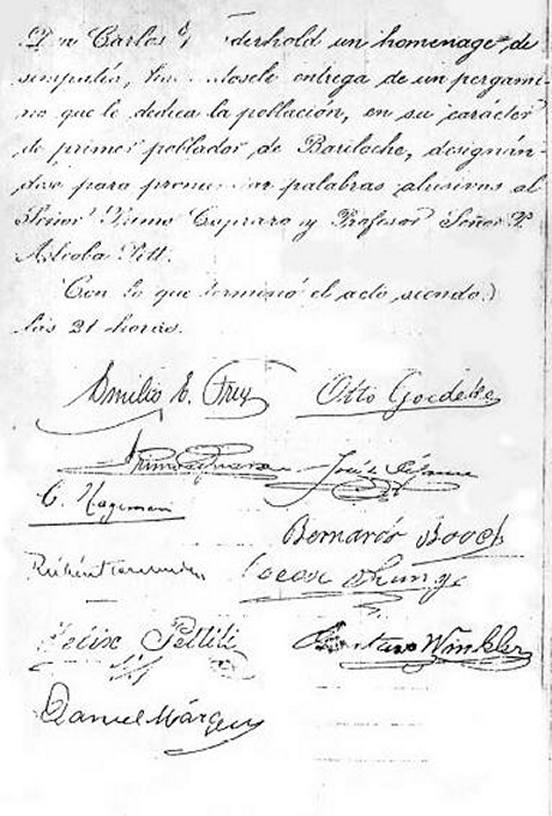 Don Carlos derhold un homenage de
simpatía, entrega de un pergami-
no que le dedica la población, en su carácter
de primer poblador de Bariloche, designán-
dose para palabras alusivas al
Señor Primo Capraro y Profesor Señor P.
Con lo que terminó el acto siendo
las 21 horas.
Emilio E. Frey Otto Goedecke
Primo Capraro José
C. Hagemann
Bernardo Boock
Rubén Fernández Oscar Runge
Felix Pettiti Gustavo Winkler
Daniel Márquez